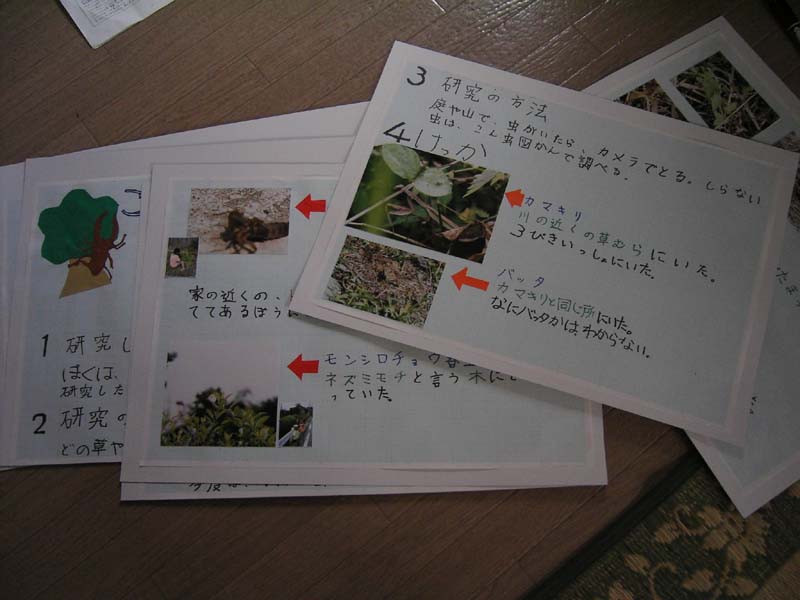 3 研究の方法
庭や山で、虫がいたら、カメラでとる。しらない
虫は、こん虫図かんで調べる。
4 けっか
カマキリ
川の近くの草むらにいた。
3びきいっしょにいた。
バッタ
カマキリと同じ所にいた。
なにバッタかは、わからない。
家の近くの、
ててあるぼう
モンシロチョウ
ネズミモチと言う木に
っていた。
1 研究し
ぼくは、
研究した
2 研究の
どの草や